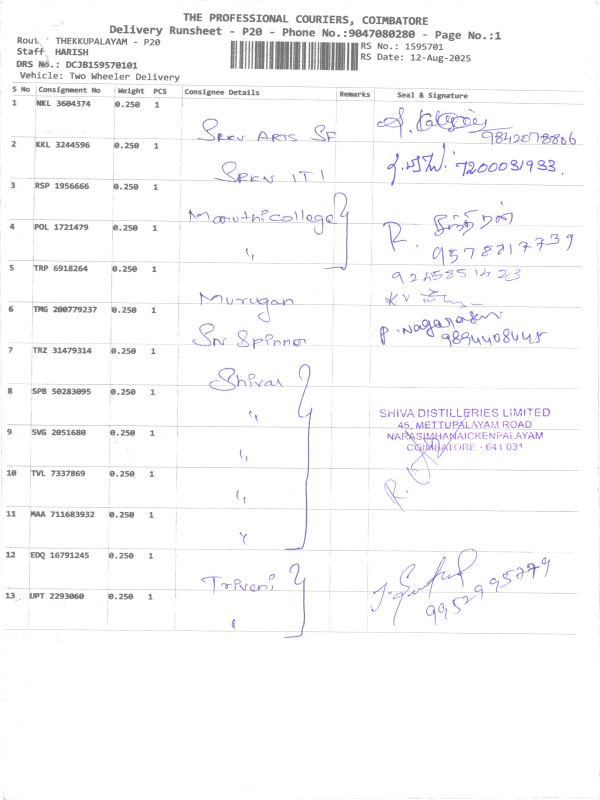 THE PROFESSIONAL COURIERS, COIMBATORE
Delivery Runsheet - P20 - Phone No.:9047080280 - Page No.:1
Rout : THEKKUPALAYAM - P20
Staff HARISH
DRS No.: DCJB159570101
Vehicle: Two Wheeler Delivery
RS No.: 1595701
RS Date: 12-Aug-2025
S No Consignment No Weight PCS Consignee Details Remarks Seal & Signature
1 NKL 3604374 0.250 1 SRKV ARTS SF 9842078806
2 KKL 3244596 0.250 1 SRKV ITI 7200031933.
3 RSP 1956666 0.250 1 Maruthi College
4 POL 1721479 0.250 1 " R. 9578217739
5 TRP 6918264 0.250 1 Murugan 9245851423
6 TMG 200779237 0.250 1 Sri Spinner P. Nagarajan 9894408445
7 TRZ 31479314 0.250 1 Shivas
8 SPB 50283095 0.250 1 "
SHIVA DISTILLERIES LIMITED
45, METTUPALAYAM ROAD
NARASIMHANAICKENPALAYAM
COIMBATORE - 641 031
9 SVG 2051680 0.250 1 "
10 TVL 7337869 0.250 1 "
11 MAA 711683932 0.250 1 "
12 EDQ 16791245 0.250 1 Triveni
13 UPT 2293060 0.250 1 " 9952995779